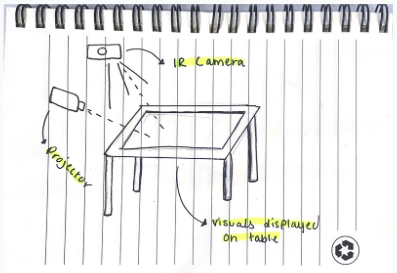 IR Camera
Projector
Visuals displayed
on table